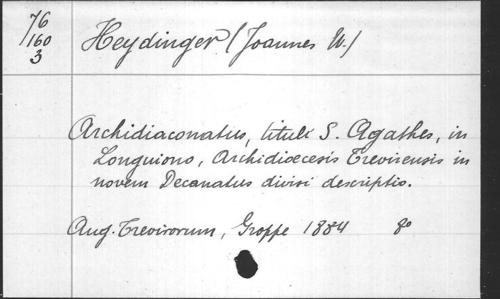 76
/160
3
Heydinger (Joannes W.)
Archidiaconatus, tituli S. Agathes, in
Longuiono, Archidioecesis Trevirensis in
novem Decanatus divisi descriptio.
Aug. Trevirorum, Groppe 1884 8o